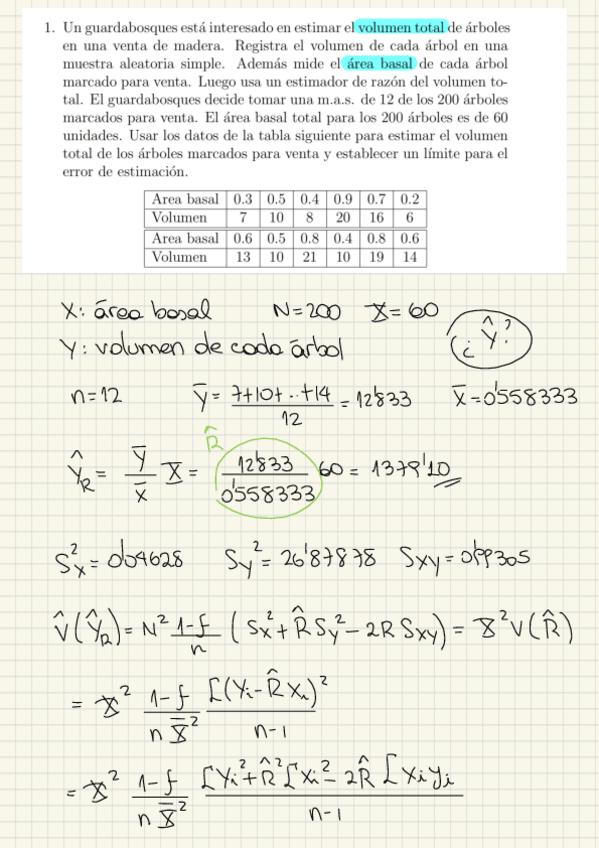 1. Un guardabosques está interesado en estimar el volumen total de árboles
en una venta de madera. Registra el volumen de cada árbol en una
muestra aleatoria simple. Además mide el área basal de cada árbol
marcado para venta. Luego usa un estimador de razón del volumen to-
tal. El guardabosques decide tomar una m.a.s. de 12 de los 200 árboles
marcados para venta. El área basal total para los 200 árboles es de 60
unidades. Usar los datos de la tabla siguiente para estimar el volumen
total de los árboles marcados para venta y establecer un límite para el
error de estimación.
Area basal 0.3 0.5 0.4 0.9 0.7 0.2
Volumen 7 10 8 20 16 6
Area basal 0.6 0.5 0.8 0.4 0.8 0.6
Volumen 13 10 21 10 19 14
X: área basal N=200 X=60
Y: volumen de cada árbol ¿Ŷ?
n=12 ȳ = (7+10+..+14)/12 = 12'833 x̄=0'558333
Ŷ_R = ȳ/x̄ X = R̂ 12'833/0'558333 60 = 1379'10
Sx² = 0'04628 Sy² = 26'87878 Sxy = 0'99305
V̂(Ŷ_R) = N² (1-f)/n (Sx² + R̂ Sy² - 2R Sxy) = X² V(R̂)
= X² (1-f)/(n X̄²) Σ(Yi - R̂ Xi)²/(n-1)
= X² (1-f)/(n X̄²) (ΣYi² + R̂² ΣXi² - 2R̂ ΣXiyi)/(n-1)